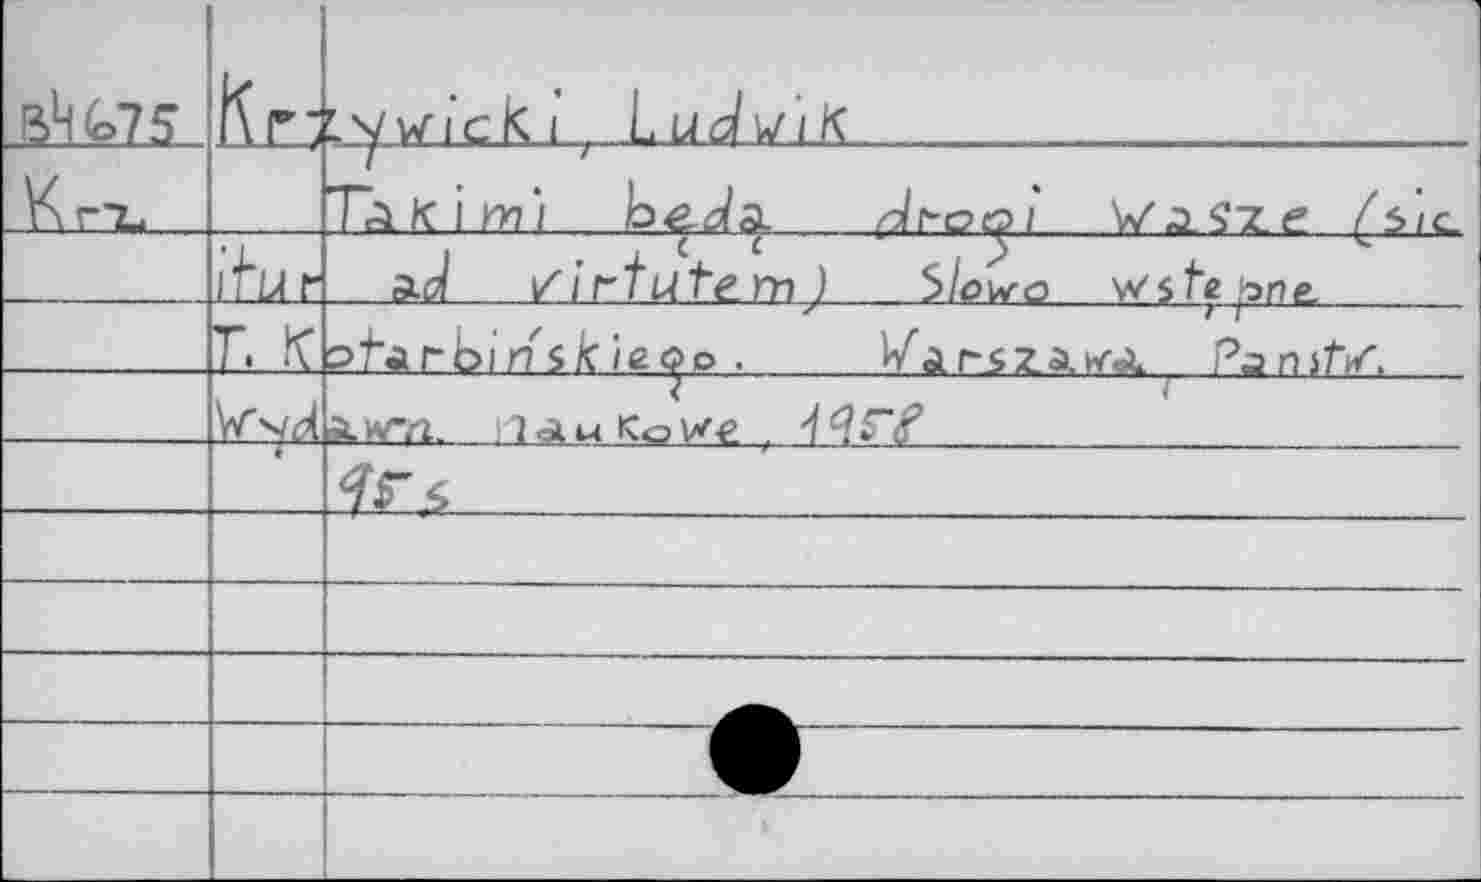 B4675 Krzywicki, Ludwik
Krz. Takimi będą drogi wasze (sic
itur ad virtutem) Słowo wstępne
T. Kotarbińskiego. Warszawa, Państw.
Wydawn. naukowe, 1958
95 s